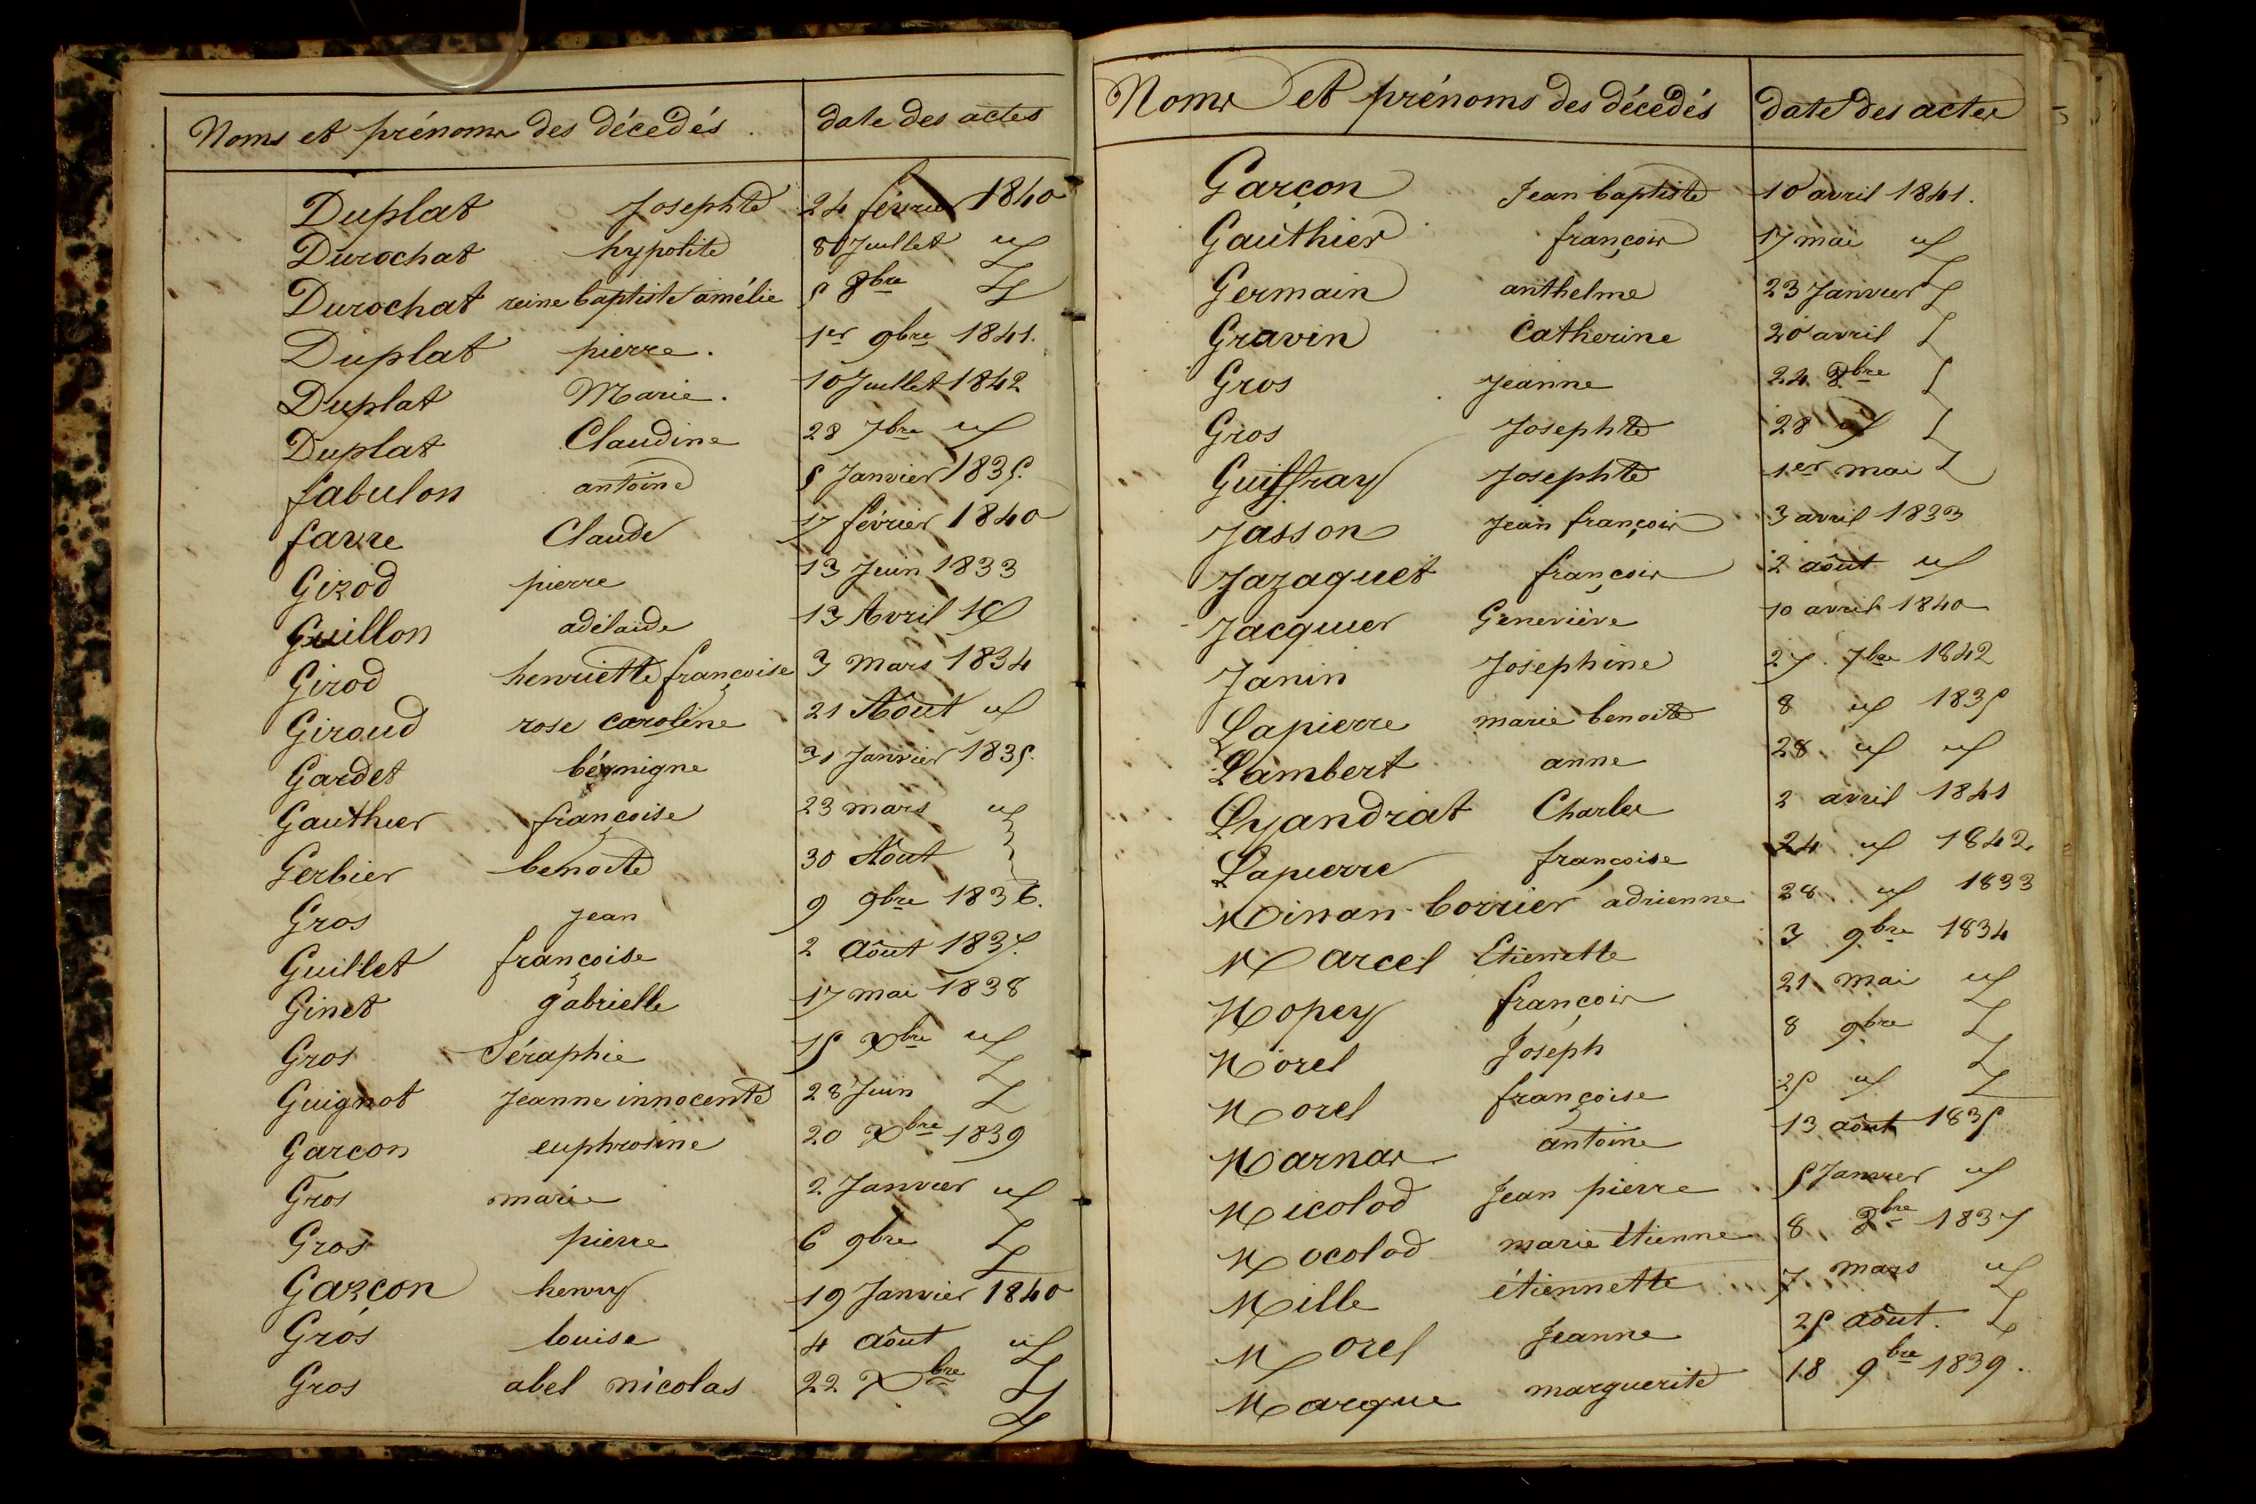 Noms et prénoms des décedés date des actes
Duplat Josephte 24 février 1840
Durochat hypolite 8 Juillet id
Durochat reine baptiste amélie 5 8bre
Duplat pierre. 1er 9bre 1841.
Duplat Marie. 10 Juillet 1842
Duplat Claudine 28 7bre id
fabulon antoine 5 Janvier 1835.
favre Claude 17 février 1840
Girod pierre 13 Juin 1833
Guillon adélaide 13 Avril id
Girod henriette françoise 3 Mars 1834
Giroud rose caroline 21 Août id
Gardet bénigne 31 Janvier 1835.
Gauthier françoise 23 mars id
Gerbier benoite 30 Août
Gros Jean 9 9bre 1836.
Guillet françoise 2 Août 1837.
Ginet gabrielle 17 mai 1838
Gros Séraphie 15 Xbre id
Guignot Jeanne innocente 28 Juin
Garcon euphrosine 20 Xbre 1839
Gros marie 2 Janvier id
Gros pierre 6 9bre
Garçon henry 19 Janvier 1840
Gros louise 4 Août id
Gros abel nicolas 22 Xbre
Noms et prénoms des décedés date des actes
Garçon Jean baptiste 10 avril 1841.
Gauthier françois 17 mai id
Germain anthelme 23 Janvier
Gravin Catherine 20 avril
Gros Jeanne 22 8bre
Gros Josephte 28 id
Guiffray Josephte 1er mai
Jasson Jean françois 3 avril 1833
Jazaquet françois 2 août id
Jacquier Geneviève 10 avril 1840
Janin Josephine 27 7bre 1842
Lapierre marie benoite 8 id 1835
Lambert anne 28 id id
Lyandrat Charles 2 avril 1841
Lapierre françoise 24 id 1842.
Minan-borrier adrienne 28 id 1833
Marcel Etienette 3 9bre 1834
Mopey françois 21 mai id
Morel Joseph 8 9bre
Morel françoise 25 id
Marnas antoine 13 août 1835
Nicolod Jean pierre 5 Janvier id
Nocolod marie étienne 8 8bre 1837
Mille étiennette 7 mars id
Morel Jeanne 25 août.
Marque marguerite 18 9bre 1839.